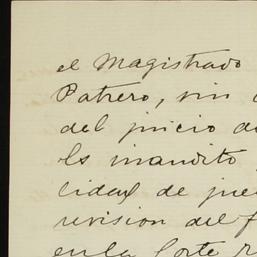 el Magistrado
Patrero, sin
del juicio de
Es inaudito
lidad de jue
revision del f
en la Corte